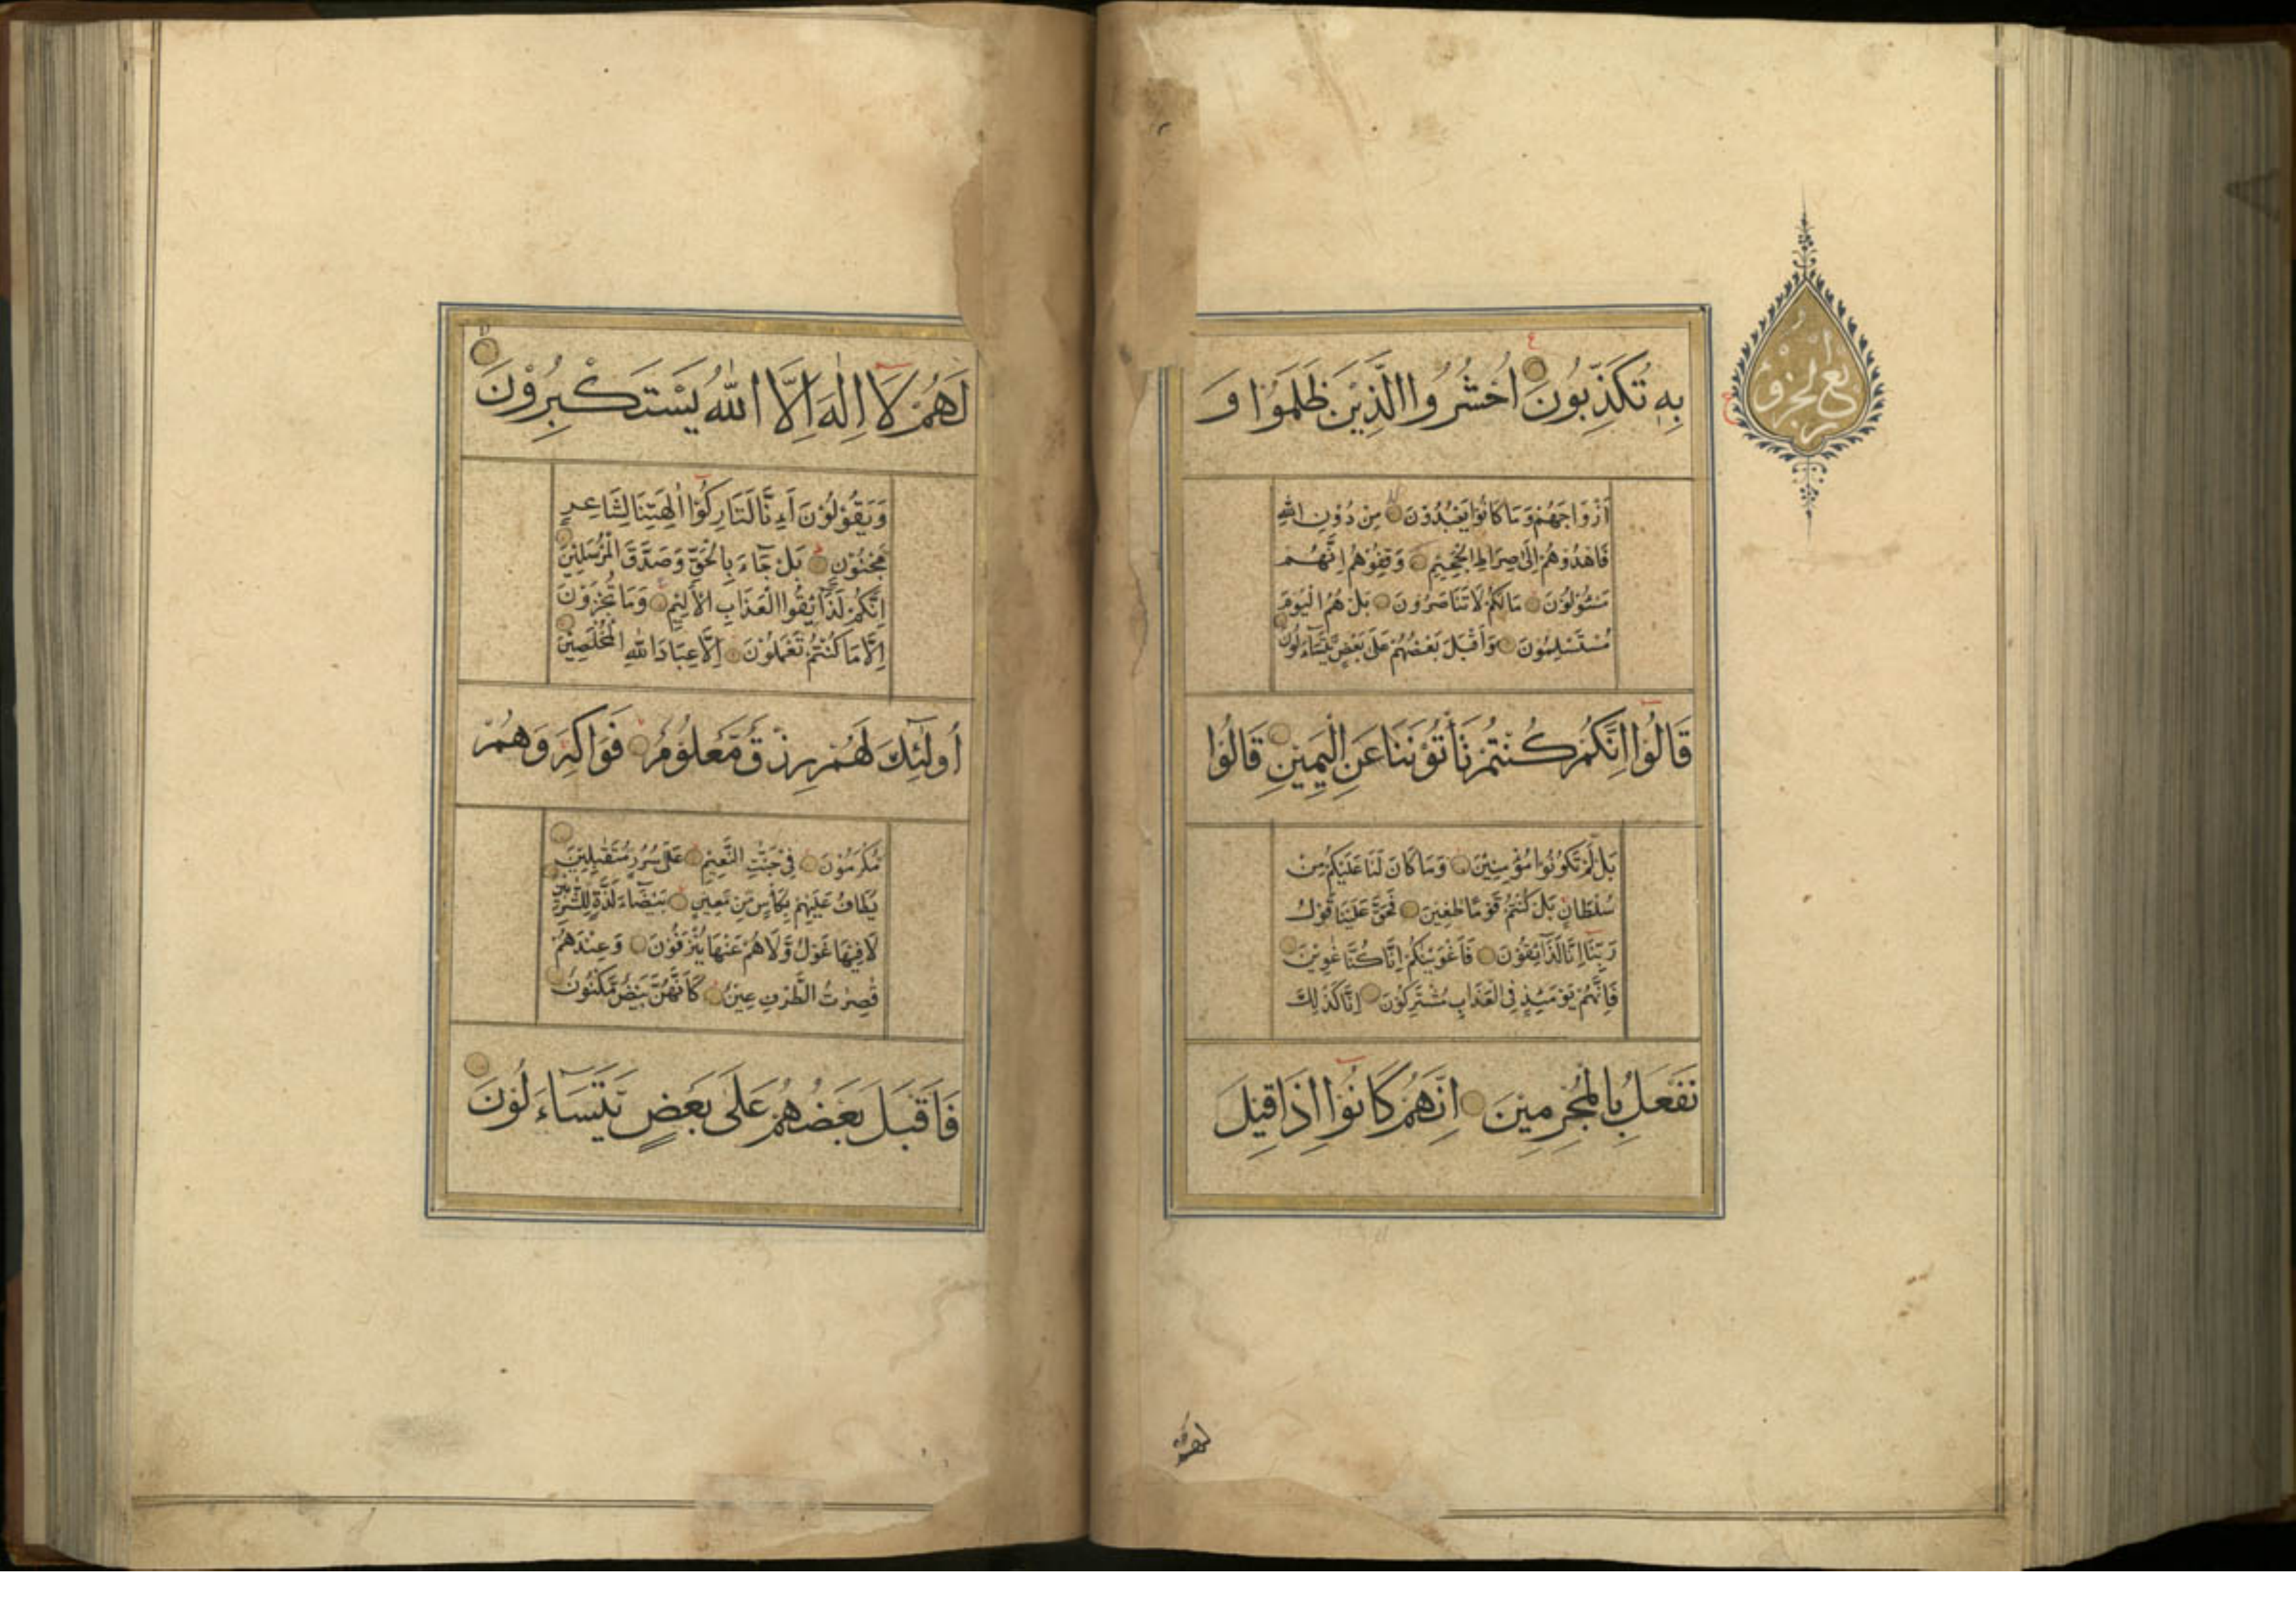 بِهِ تُكَذِّبُونَ اُحْشُرُوا الَّذِيْنَ ظَلَمُوْا وَ
اَزْوَاجَهُمْ وَمَا كَانُوْا يَعْبُدُوْنَ مِنْ دُوْنِ اللّٰهِ
فَاهْدُوْهُمْ اِلٰى صِرَاطِ الْجَحِيْمِ وَقِفُوْهُمْ اِنَّهُمْ
مَسْئُوْلُوْنَ مَا لَكُمْ لَا تَنَاصَرُوْنَ بَلْ هُمُ الْيَوْمَ
مُسْتَسْلِمُوْنَ وَاَقْبَلَ بَعْضُهُمْ عَلٰى بَعْضٍ يَّتَسَاءَلُوْنَ
قَالُوْا اِنَّكُمْ كُنْتُمْ تَأْتُوْنَنَا عَنِ الْيَمِيْنِ قَالُوْا
بَلْ لَّمْ تَكُوْنُوْا مُؤْمِنِيْنَ وَمَا كَانَ لَنَا عَلَيْكُمْ مِنْ
سُلْطَانٍ بَلْ كُنْتُمْ قَوْمًا طٰغِيْنَ فَحَقَّ عَلَيْنَا قَوْلُ
رَبِّنَا اِنَّا لَذَائِقُوْنَ فَاَغْوَيْنٰكُمْ اِنَّا كُنَّا غٰوِيْنَ
فَاِنَّهُمْ يَوْمَئِذٍ فِى الْعَذَابِ مُشْتَرِكُوْنَ اِنَّا كَذٰلِكَ
نَفْعَلُ بِالْمُجْرِمِيْنَ اِنَّهُمْ كَانُوْا اِذَا قِيْلَ
لَهُمْ لَا اِلٰهَ اِلَّا اللّٰهُ يَسْتَكْبِرُوْنَ
وَيَقُوْلُوْنَ اَءِنَّا لَتَارِكُوْا اٰلِهَتِنَا لِشَاعِرٍ
مَجْنُوْنٍ بَلْ جَاءَ بِالْحَقِّ وَصَدَّقَ الْمُرْسَلِيْنَ
اِنَّكُمْ لَذَائِقُوا الْعَذَابِ الْاَلِيْمِ وَمَا تُجْزَوْنَ
اِلَّا مَا كُنْتُمْ تَعْمَلُوْنَ اِلَّا عِبَادَ اللّٰهِ الْمُخْلَصِيْنَ
اُولٰئِكَ لَهُمْ رِزْقٌ مَّعْلُوْمٌ فَوَاكِهُ وَهُمْ
مُّكْرَمُوْنَ فِىْ جَنّٰتِ النَّعِيْمِ عَلٰى سُرُرٍ مُّتَقٰبِلِيْنَ
يُطَافُ عَلَيْهِمْ بِكَأْسٍ مِّنْ مَّعِيْنٍ بَيْضَاءَ لَذَّةٍ لِلشّٰرِبِيْنَ
لَا فِيْهَا غَوْلٌ وَّلَا هُمْ عَنْهَا يُنْزَفُوْنَ وَعِنْدَهُمْ
قٰصِرٰتُ الطَّرْفِ عِيْنٌ كَاَنَّهُنَّ بَيْضٌ مَّكْنُوْنٌ
فَاَقْبَلَ بَعْضُهُمْ عَلٰى بَعْضٍ يَّتَسَاءَلُوْنَ